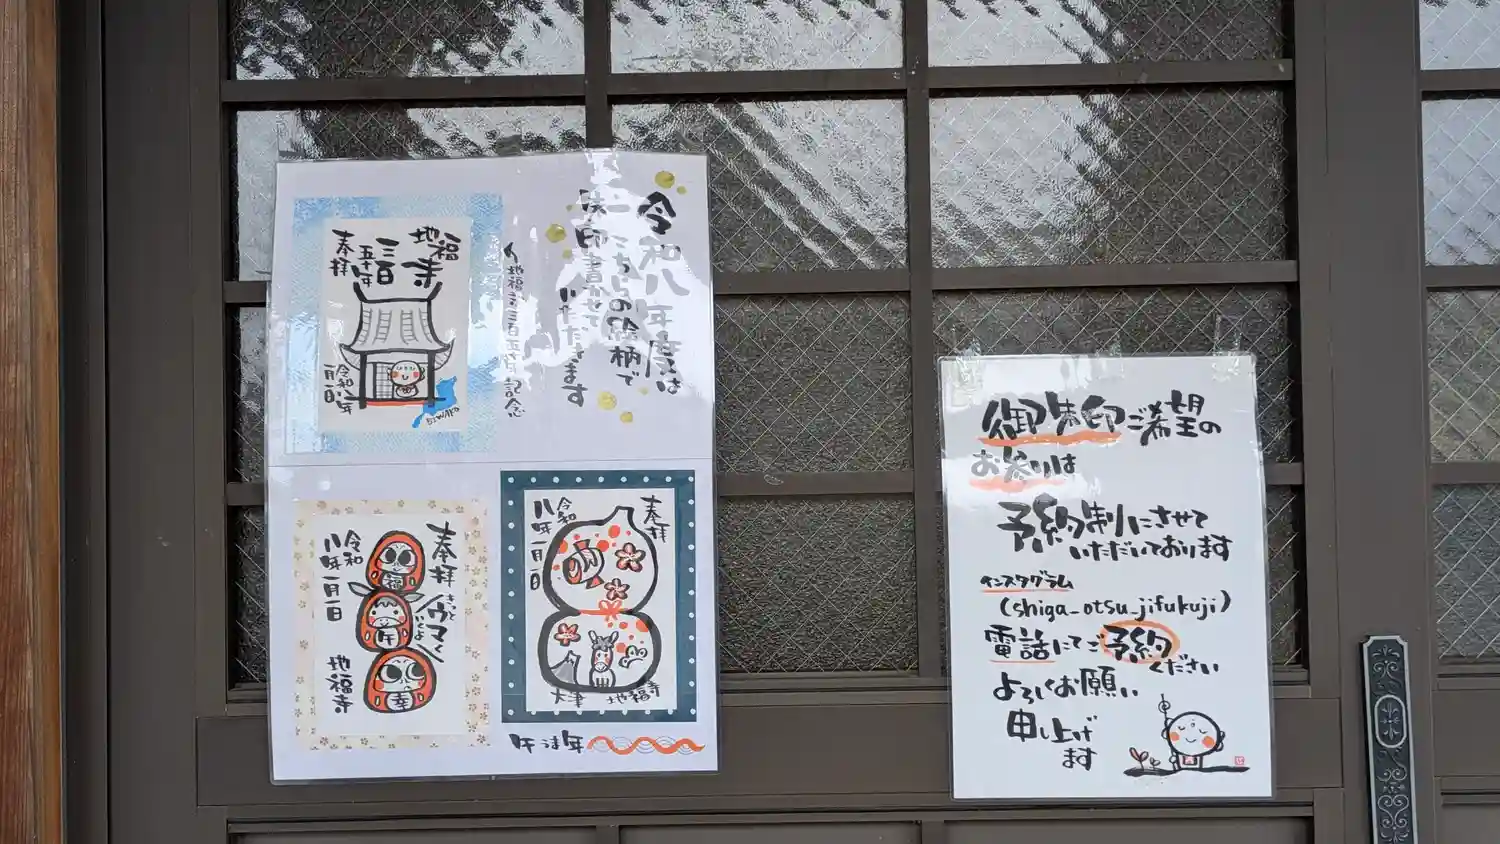 令和八年度は
こちらの絵柄で
御朱印書かせて
いただきます
地福寺三百五十年記念
奉拝
地福寺
三百
五十年
令和八年
一月一日
BIWAKO
奉拝
ウマく
いくよ
令和
八年一月一日
地福寺
福
午
幸
奉拝
令和
八年一月一日
大津
地福寺
午うま年
御朱印ご希望の
お参りは
予約制にさせて
いただいております
インスタグラム
(shiga_otsu_jifukuji)
電話にてご予約
ください
よろしくお願い
申し上げ
ます